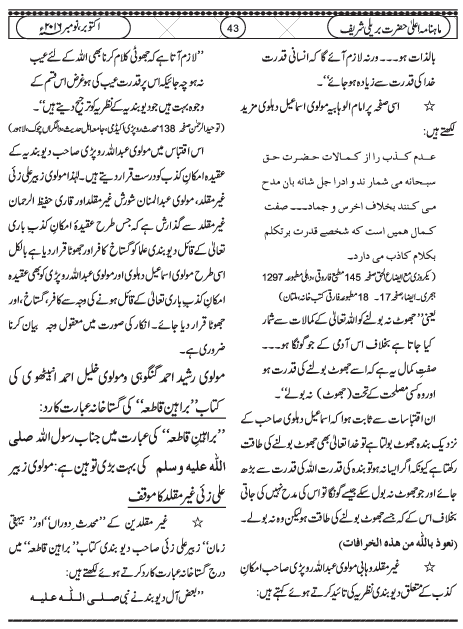 ماہنامہ اعلیٰ حضرت بریلی شریف
43
اکتوبر، نومبر ۲۰۱۶ء
بالذات ہو۔۔۔ ورنہ لازم آئے گا کہ انسانی قدرت
خدا کی قدرت سے زیادہ ہو جائے‘‘۔
☆ اسی صفحہ پر امام الوہابیہ مولوی اسماعیل دہلوی مزید
لکھتے ہیں:
عدم کذب را از کمالات حضرت حق
سبحانہ می شمارند و ادرا جل شانہ بان مدح
می کنند بخلاف اخرس و جماد۔۔۔ صفت
کمال ہمیں است کہ شخصے قدرت برتکلم
بکلام کاذب می دارد۔
(یکروزی مع ایضاح الحق صفحہ 145 مطبع فاروقی، دہلی مطبوعہ 1297
ہجری۔ ایضا، صفحہ 17۔ 18 مطبوعہ فاروقی کتب خانہ، ملتان)
یعنی ’’جھوٹ نہ بولنے کو اللہ تعالیٰ کے کمالات سے شمار
کیا جاتا ہے بخلاف اس آدمی کے جو گونگا ہو۔۔۔
صفت کمال یہ ہے کہ اسے جھوٹ بولنے کی قدرت ہو
اور وہ کسی مصلحت کے تحت (جھوٹ) نہ بولے‘‘۔
ان اقتباسات سے ثابت ہوا کہ اسماعیل دہلوی صاحب کے
نزدیک بندہ جھوٹ بولتا ہے تو خدا تعالیٰ بھی جھوٹ بولنے کی طاقت
رکھتا ہے کیونکہ اگر ایسا نہ ہو تو بندہ کی قدرت اللہ کی قدرت سے بڑھ
جائے اور جو جھوٹ نہ بول سکے جیسے گونگا تو اس کی مدح نہیں کی جاتی
بخلاف اس کے کہ جسے جھوٹ بولنے کی طاقت ہو لیکن وہ نہ بولے۔
(نعوذ باللہ من ھذہ الخرافات)
☆ غیر مقلد وہابی مولوی عبداللہ روپڑی صاحب امکان
کذب کے متعلق دیوبندی نظریہ کی تائید کرتے ہوئے کہتے ہیں:
’’لازم آتا ہے کہ جھوٹی کلام کرنا بھی اللہ کے لئے عیب
نہ ہو چہ جائیکہ اس پر قدرت عیب کی ہو غرض اس قسم کے
وجوہ بہت ہیں جو دیوبندیہ کے نظریہ کو ترجیح دیتے ہیں‘‘۔
(توحید الرحمٰن صفحہ 138 محدث روپڑی اکیڈمی، جامعہ اہل حدیث، دالگراں چوک، لاہور)
اس اقتباس میں مولوی عبداللہ روپڑی صاحب دیوبندیہ کے
عقیدہ امکان کذب کو درست قرار دیتے ہیں۔ لہٰذا مولوی زبیر علی زئی
غیر مقلد، مولوی عبدالمنان شورش غیر مقلد اور قاری حفیظ الرحمان
غیر مقلد سے گذارش ہے کہ جس طرح عقیدۂ امکان کذب باری
تعالیٰ کی وجہ سے دیوبندی علما کو گستاخ کافر اور جھوٹا قرار دیا ہے بالکل
اسی طرح مولوی اسماعیل دہلوی اور مولوی عبداللہ روپڑی کو بھی عقیدہ
امکان کذب باری تعالیٰ کے قائل ہونے کی وجہ سے کافر، گستاخ، اور
جھوٹا قرار دیا جائے۔ انکار کی صورت میں معقول وجہ بیان کرنا
ضروری ہے۔
مولوی رشید احمد گنگوہی و مولوی خلیل احمد انبیٹھوی کی
کتاب ’’براہین قاطعہ‘‘ کی گستاخانہ عبارت کا رد:
’’براہین قاطعہ‘‘ کی عبارت میں جناب رسول اللہ صلی
اللہ علیہ وسلم کی بہت بڑی توہین ہے: مولوی زبیر
علی زئی غیر مقلد کا موقف
☆ غیر مقلدین کے ’’محدث دوراں‘‘ اور ’’بیہقی
زمان‘‘ زبیر علی زئی صاحب دیوبندی کتاب ’’براہین قاطعہ‘‘ میں
درج گستاخانہ عبارت کا رد کرتے ہوئے لکھتے ہیں:
’’بعض آل دیوبند نے نبی صلی اللہ علیہ